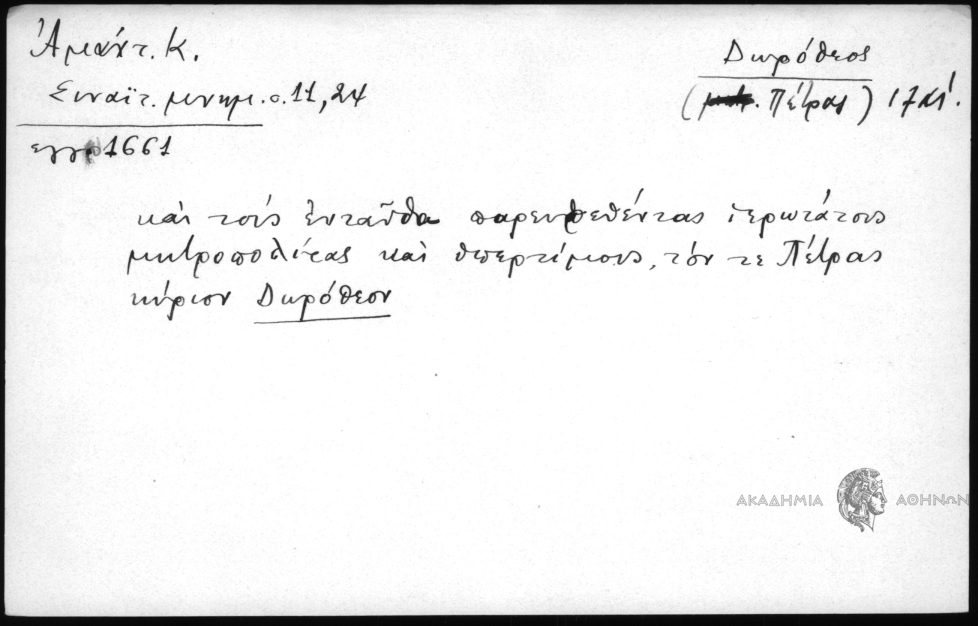 Ἀμάντ. Κ.
Σιναϊτ. μνημ. σ. 11, 24
εγγρ 1661
Δωρόθεος
(μητρ. Πέτρας) 17 αἰ.
καὶ τοὺς ἐνταῦθα παρευρεθέντας ἱερωτάτους
μητροπολίτας καὶ ὑπερτίμους, τόν τε Πέτρας
κύριον Δωρόθεον
ΑΚΑΔΗΜΙΑ ΑΘΗΝΩΝ